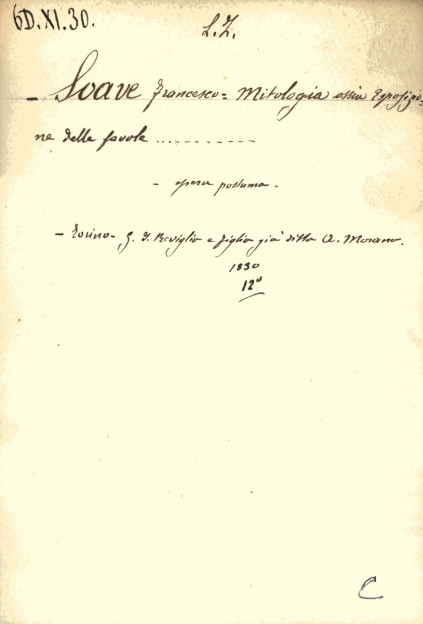 6D.XI.30.
L.Z.
- Soave Francesco= Mitologia ossia Esposizio-
ne delle favole ..........
- opera postuma.
- Torino- G. I. Reviglio e figlio già ditta A. Morano.
1830
12°
C